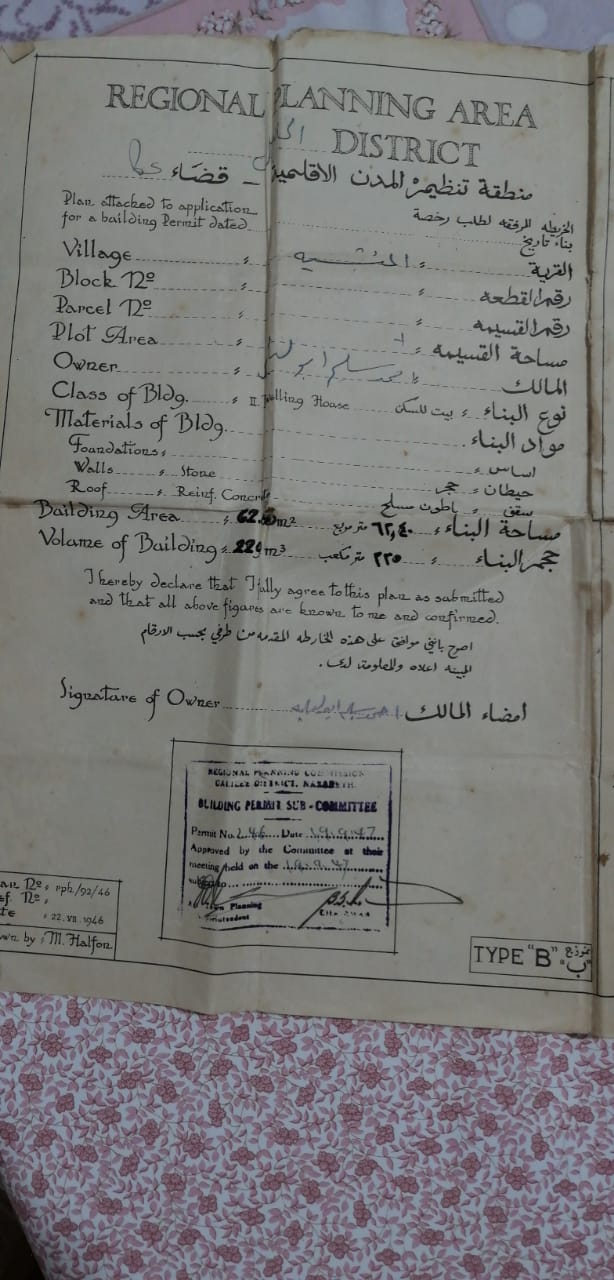 REGIONAL PLANNING AREA
DISTRICT
منطقة تنظيم المدن الاقليمية - قضاء عكا
Plan attached to application
for a building Permit dated
الخريطه المرفقه لطلب رخصة
بناء تاريخ
Village : المنشيه : القرية
Block Nº : : رقم القطعه
Parcel Nº : : رقم القسيمه
Plot Area : : مساحة القسيمه
Owner : احمد سليم ابو : المالك
Class of Bldg. : Dwelling House بيت للسكن : نوع البناء
Materials of Bldg. مواد البناء
Foundations : : اساس
Walls : Stone حجر : حيطان
Roof : Reinf. Concrete باطون مسلح : سقف
Building Area : m² ٦٢,٤٠ متر مربع : مساحة البناء
Volume of Building : m³ ٢٢٥ متر مكعب : حجم البناء
I hereby declare that I fully agree to this plan as submitted
and that all above figures are known to me and confirmed.
اصرح بانني موافق على هذه الخارطه المقدمه من طرفي بحسب الارقام
المبينه اعلاه والمعلومة لدي.
Signature of Owner احمد سليم ابو امضاء المالك
REGIONAL PLANNING COMMISSION
GALILEE DISTRICT, NAZARETH.
BUILDING PERMIT SUB-COMMITTEE
Permit No. 246 Date 19.9.47
Approved by the Committee at their
meeting held on the 19.9.47
Town Planning
an Nº : rph/92/46
ef. Nº :
te : 22.VII.1946
wn by : M. Halfon
TYPE "B" نموذج "ب"